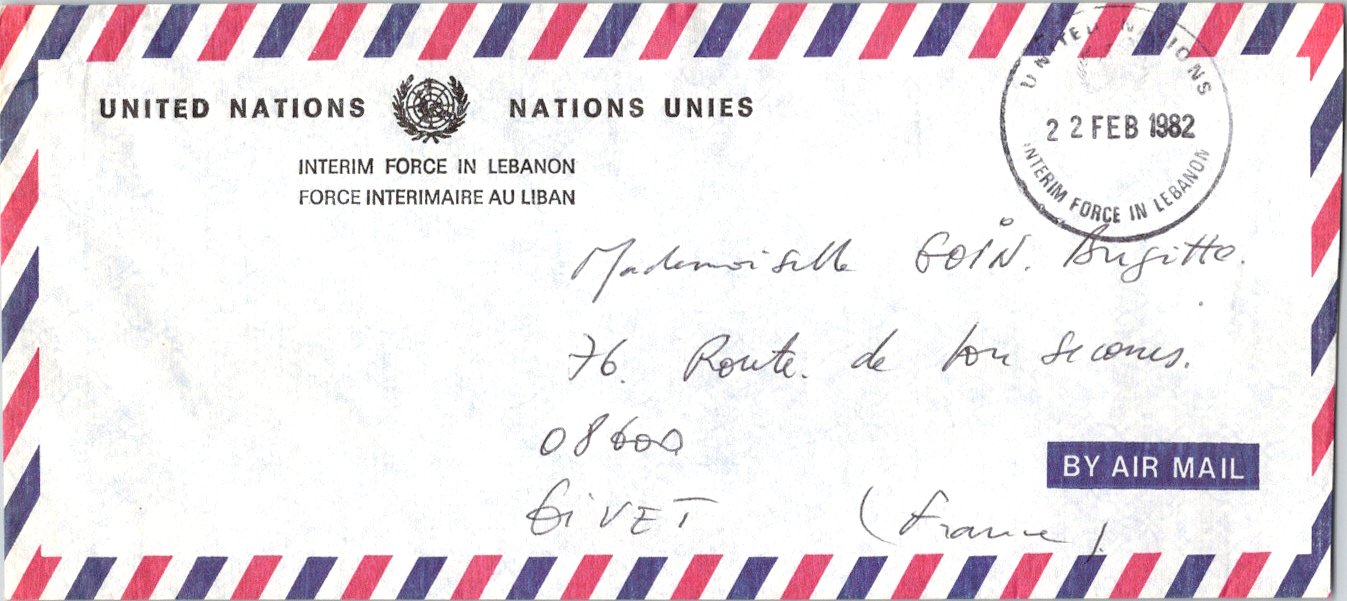 UNITED NATIONS NATIONS UNIES
INTERIM FORCE IN LEBANON
FORCE INTERIMAIRE AU LIBAN
UNITED NATIONS
22 FEB 1982
INTERIM FORCE IN LEBANON
Mademoiselle GOIN. Brigitte.
76. Route. de bon secours.
08600
GIVET (France).
BY AIR MAIL